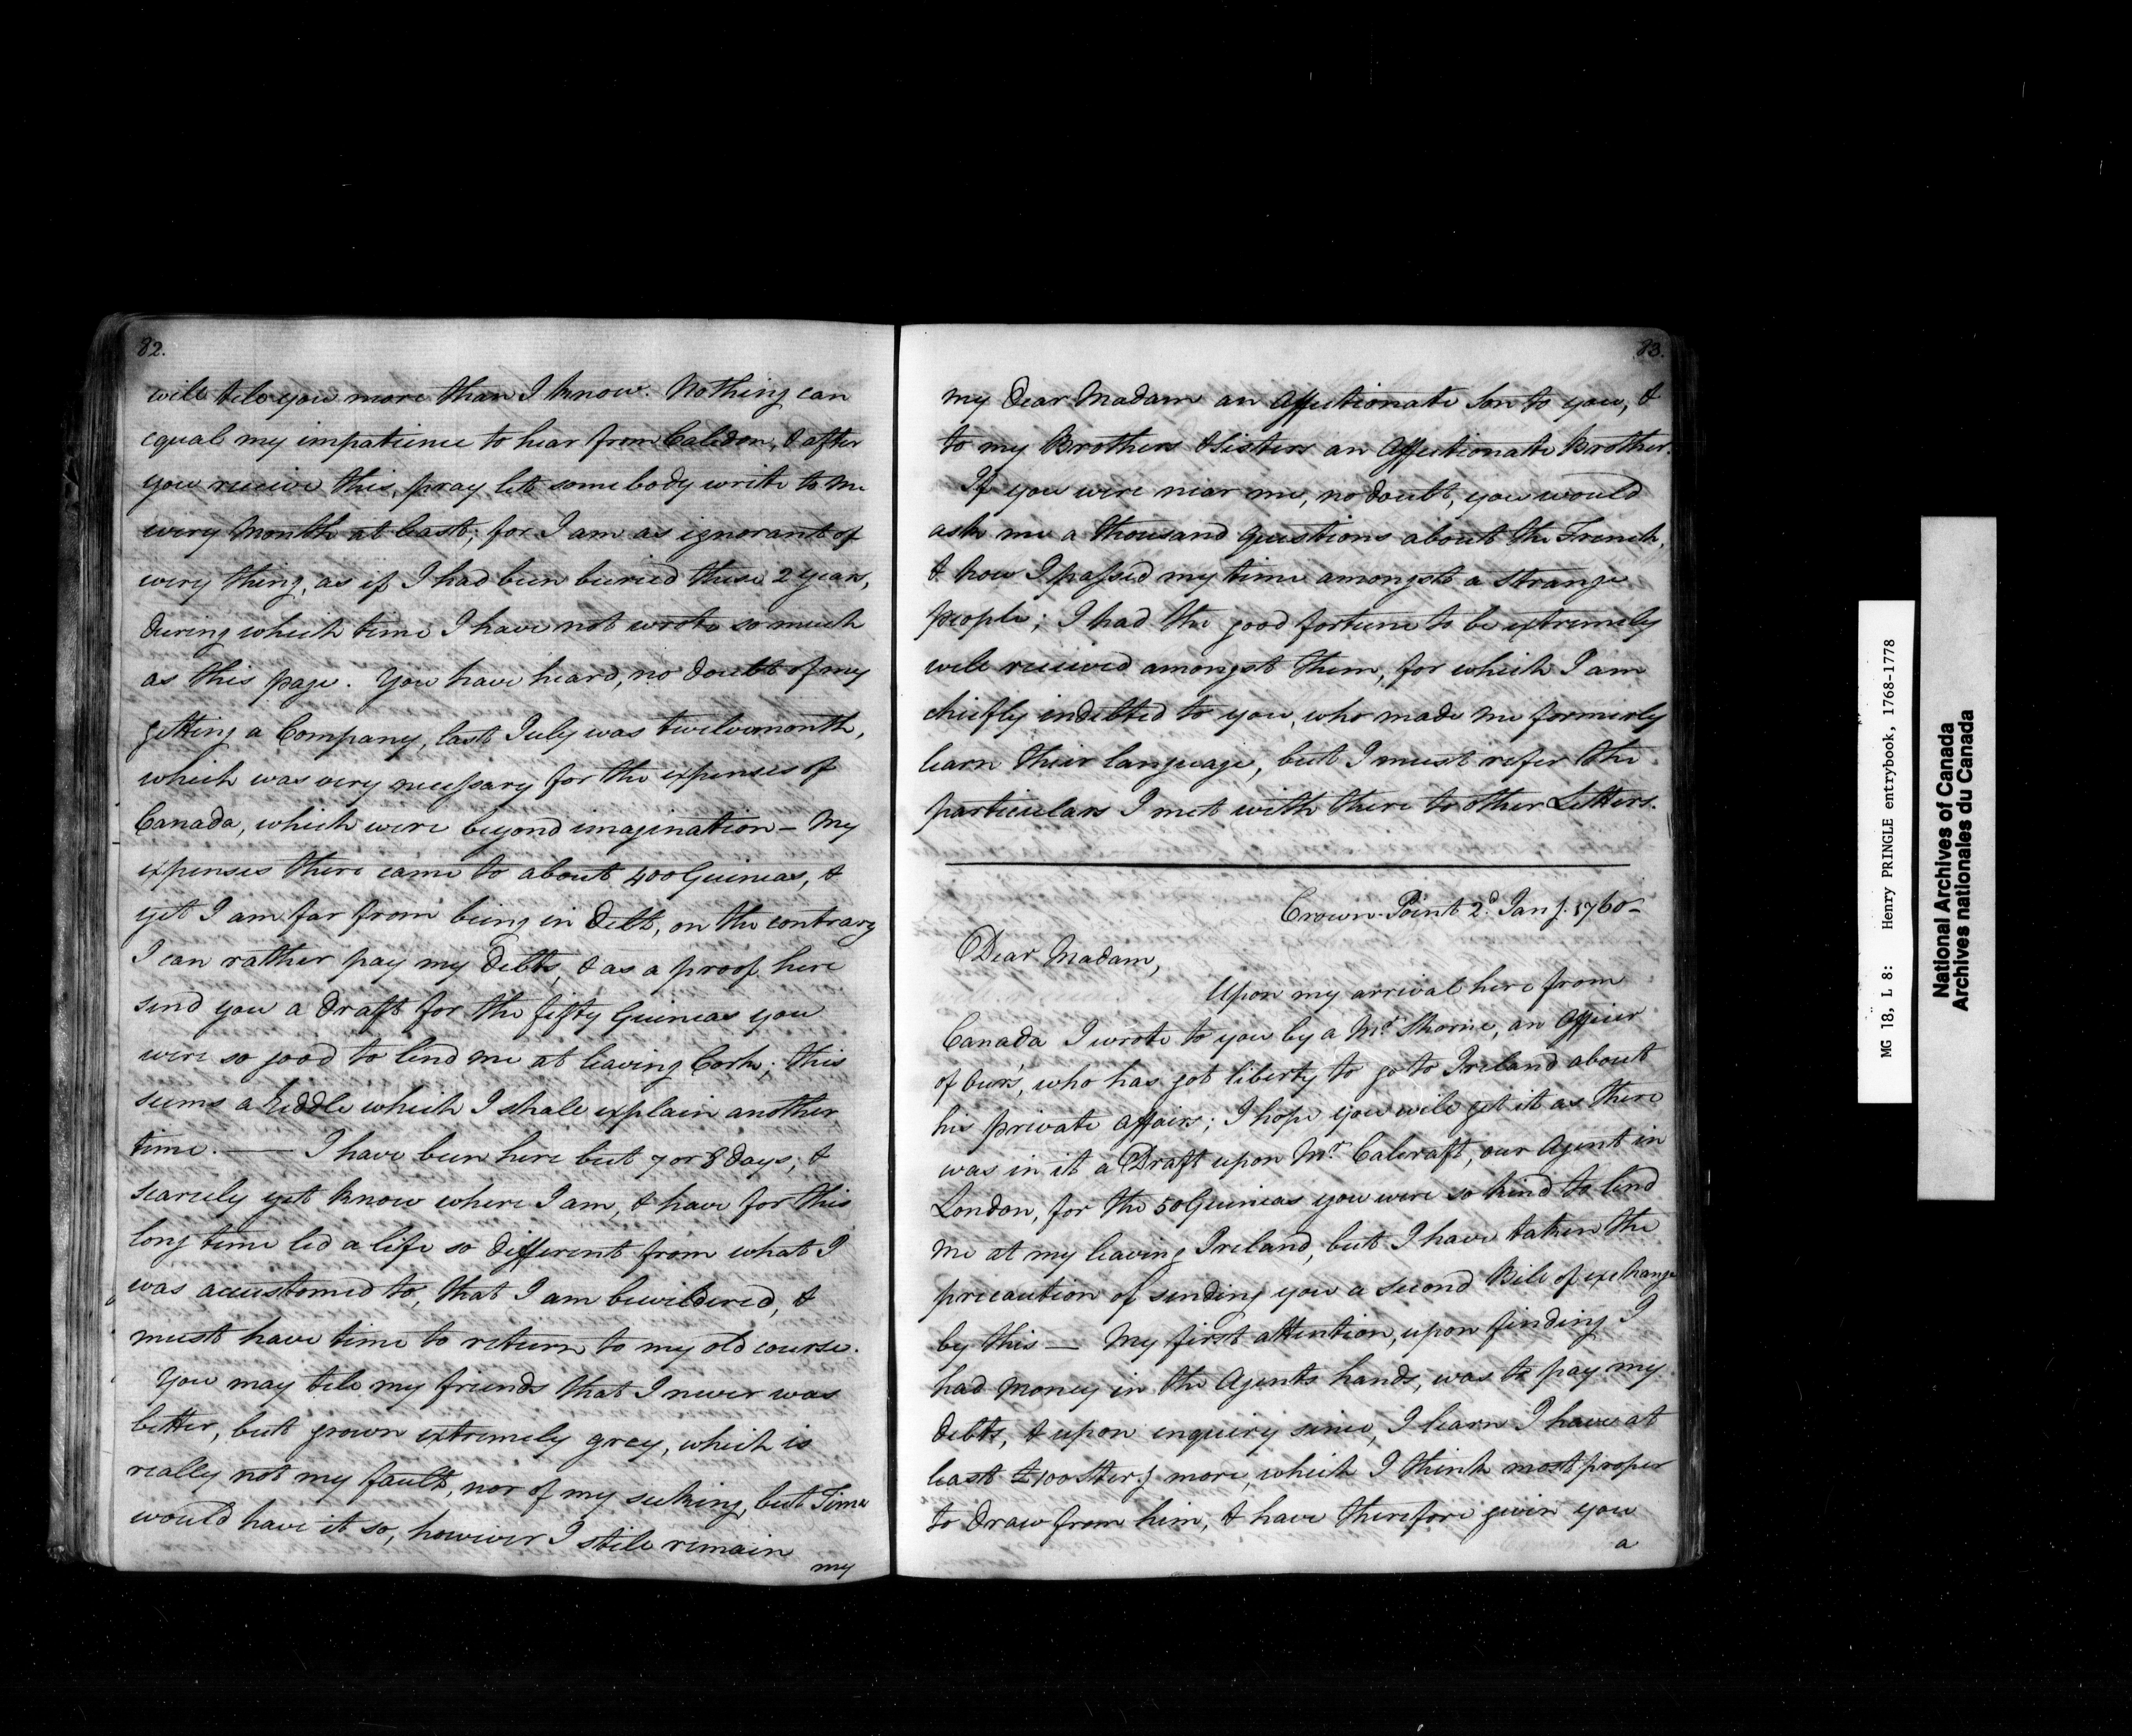 82.
will tell you more than I know. Nothing can
equal my impatience to hear from Caledon, & after
you receive this, pray let somebody write to me
every Month at least; for I am as ignorant of
every thing, as if I had been buried these 2 years,
during which time I have not wrote so much
as this page. You have heard, no doubt of my
getting a Company, last July was twelvemonth,
which was very necessary for the expenses of
Canada, which were beyond imagination – My
expenses there came to about 400 Guineas, &
yet I am far from being in Debt, on the contrary
I can rather pay my Debts, & as a proof here
send you a Draft for the fifty Guineas you
were so good to lend me at leaving Cork; this
seems a Riddle which I shall explain another
time. — I have been here but 7 or 8 days; &
scarcely yet know where I am, & have for this
long time led a life so different from what I
was accustomed to, that I am bewildered, &
must have time to return to my old course.
You may tell my friends that I never was
better, but grown extremely grey, which is
really not my fault, nor of my seeking, but Time
would have it so, however I still remain
my
83.
my Dear Madam an Affectionate Son to you, &
to my Brothers & Sisters an Affectionate Brother.
If you were near me, no doubt, you would
ask me a thousand questions about the French,
& how I passed my time amongst a strange
people; I had the good fortune to be extremely
well received amongst them, for which I am
chiefly indebted to you, who made me formerly
learn their language, but I must refer the
particulars I met with there to other Letters.
Crown-Point 2d. Jany. 1760–
Dear Madam,
Upon my arrival here from
Canada I wrote to you by a Mr. Thorne, an Officer
of Ours, who has got liberty to go to Ireland about
his private affairs; I hope you will get it as there
was in it a Draft upon Mr. Calcraft, our Agent in
London, for the 50 Guineas you were so kind to lend
me at my leaving Ireland, but I have taken the
precaution of sending you a second Bill of exchange
by this — My first attention, upon finding I
had Money in the Agents hands, was to pay my
debts, & upon enquiry since, I learn I have at
least £100 Sterg. more, which I think most proper
to draw from him, & have therefore given you
a
MG 18, L 8: Henry PRINGLE entrybook, 1768-1778
National Archives of Canada
Archives nationales du Canada